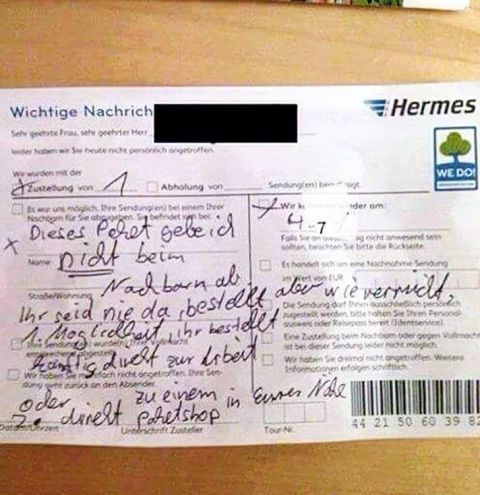 Wichtige Nachrich
Hermes
Sehr geehrte Frau, sehr geehrter Herr
leider haben wir Sie heute nicht persönlich angetroffen.
WE DO!
Wir wurden mit der
x Zustellung von 1 Abholung von Sendung(en)
Es war uns möglich, Ihre Sendung(en) bei einem Ihrer
Nachbarn für Sie abzugeben. Sie befindet sich bei:
x Dieses Paket gebe ich
Name nicht beim
Straße/Wohnung Nachbarn ab
Ihr seid nie da, bestellt aber wie verrückt,
1. Möglichkeit, ihr bestellt
künftig direkt zur Arbeit
oder zu einem
2. direkt Paketshop in Eurer Nähe
Datum/Uhrzeit Unterschrift Zusteller Tour-Nr.
der am:
4-7
Falls Sie an
ag nicht anwesend sein
sollten, beachten Sie bitte die Rückseite.
Es handelt sich um eine Nachnahme-Sendung
im Wert von EUR
Die Sendung darf Ihnen ausschließlich persönlich
zugestellt werden, bitte halten Sie Ihren Personal-
ausweis oder Reisepass bereit (Identservice).
Eine Zustellung beim Nachbarn oder gegen Vollmacht
ist bei dieser Sendung leider nicht möglich.
Wir haben Sie dreimal nicht angetroffen. Weitere
Informationen erfolgen schriftlich.
44 21 50 60 39 82